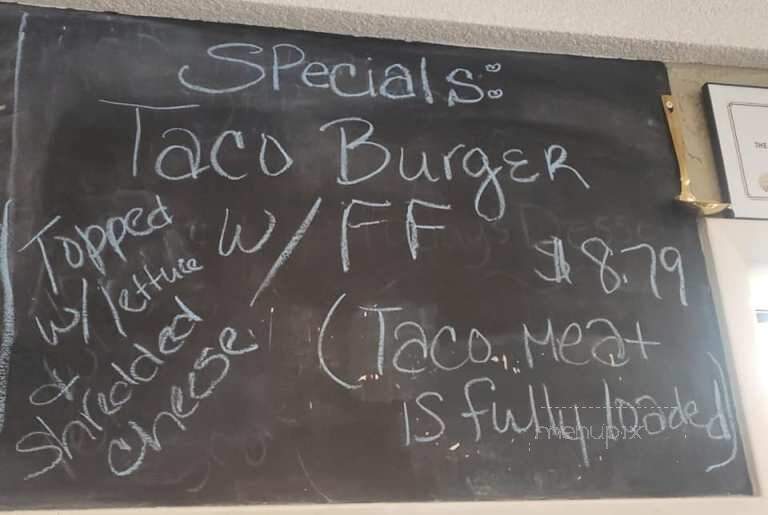 Specials:
Taco Burger
w/FF
$8.79
(Taco Meat
is fully loaded)
Topped
w/lettuce
&
shredded
cheese
menupix
THE